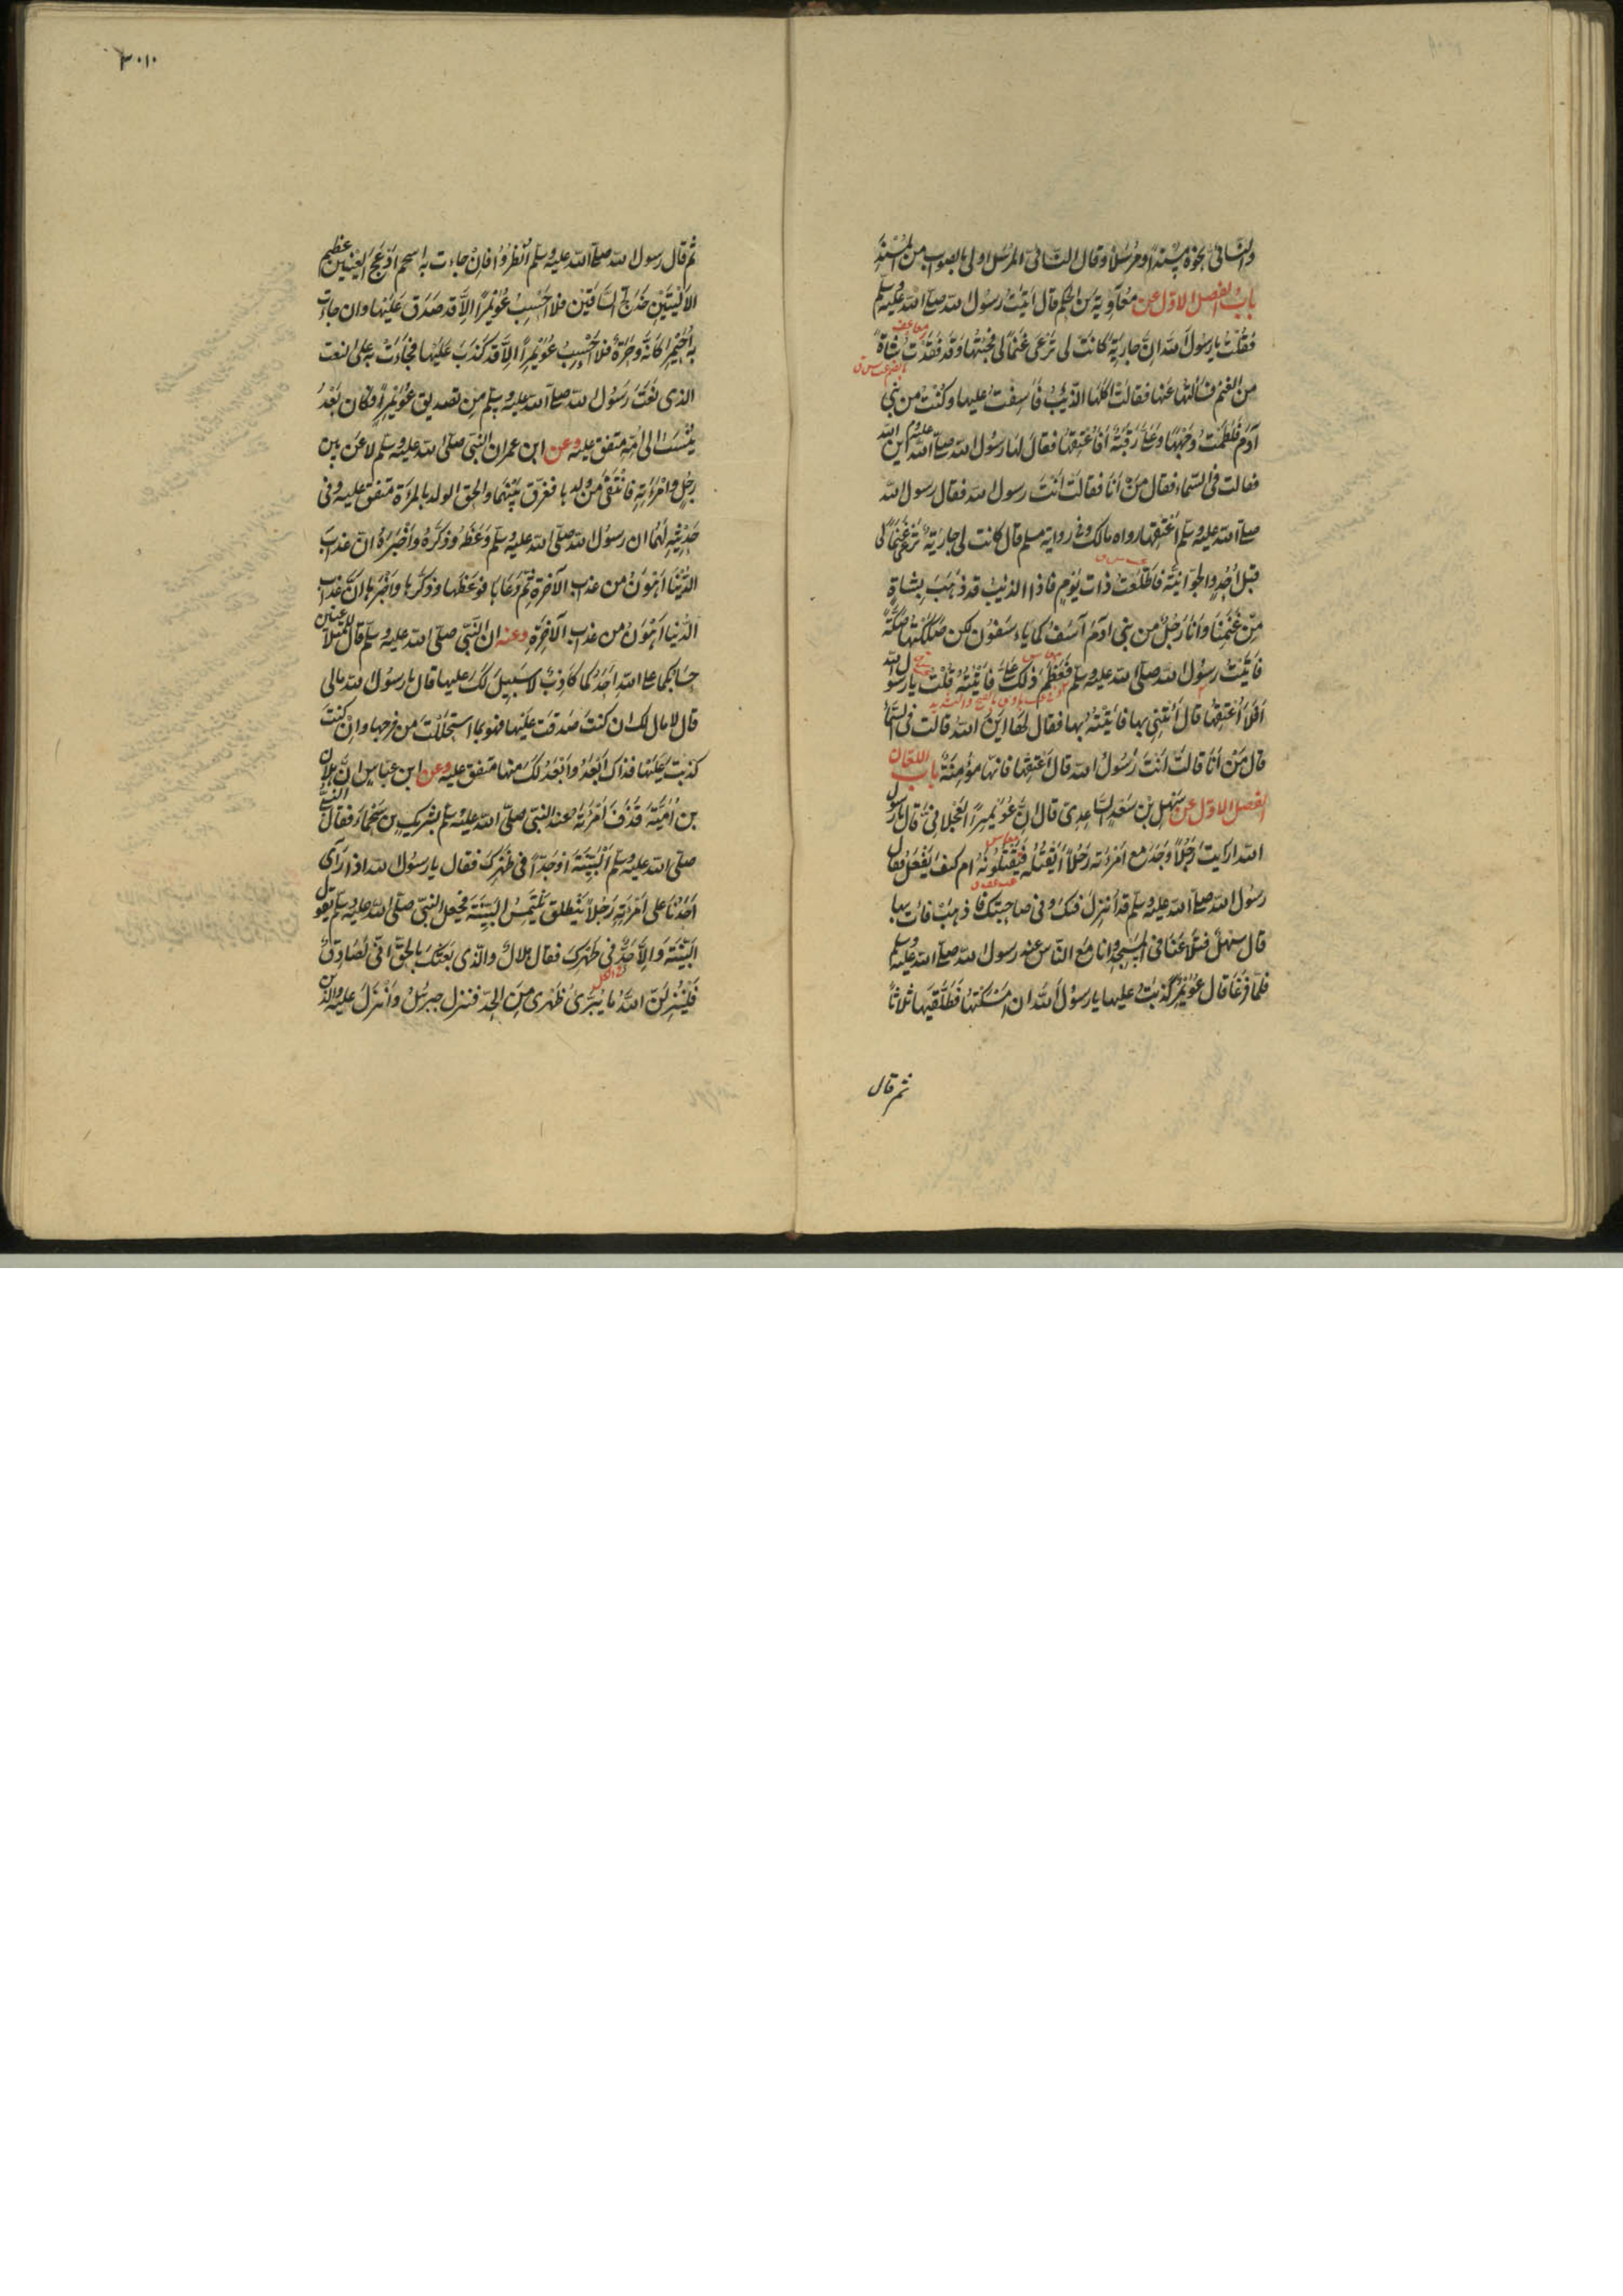 والنسائى نحوه مسندا ومرسلا وقال النسائى المرسل اولى بالصواب من المسند
باب الفصل الاول عن معاوية بن الحكم قال اتيت رسول الله صلى الله عليه وسلم
فقلت يا رسول الله ان جارية كانت لى ترعى غنما لى فجئتها وقد فقدت شاة
من الغنم فسألتها عنها فقالت اكلها الذئب فاسفت عليها وكنت من بنى
آدم فلطمت وجهها وعلى رقبة أفأعتقها فقال لها رسول الله صلى الله عليه وسلم اين الله
فقالت فى السماء فقال من انا فقالت انت رسول الله فقال رسول الله
صلى الله عليه وسلم اعتقها رواه مالك وفى رواية مسلم قال كانت لى جارية ترعى غنما لى
قبل احد والجوانية فاطلعت ذات يوم فاذا الذئب قد ذهب بشاة
من غنمنا وانا رجل من بنى ادم آسف كما ياسفون لكن صككتها صكة
فاتيت رسول الله صلى الله عليه وسلم فعظم ذلك على فاتيته قلت يا رسول الله
افلا اعتقها قال ائتنى بها فاتيته بها فقال لها اين الله قالت فى السماء
قال من انا قالت انت رسول الله قال اعتقها فانها مؤمنة باب اللعان
الفصل الاول عن سهل بن سعد الساعدى قال ان عويمرا العجلانى قال يا رسول
الله ارايت رجلا وجد مع امرءته رجلا ايقتله فيقتلونه ام كيف يفعل فقال
رسول الله صلى الله عليه وسلم قد انزل فيك وفى صاحبتك فاذهب فات بها
قال سهل فتلاعنا فى المسجد وانا مع الناس عند رسول الله صلى الله عليه وسلم
فلما فرغا قال عويمر كذبت عليها يا رسول الله ان امسكتها فطلقها ثلاثا
ثم قال
٣٠١
ثم قال رسول الله صلى الله عليه وسلم انظروا فان جاءت به اسحم ادعج العينين عظيم
الاليتين خدلج الساقين فلا احسب عويمرا الا قد صدق عليها وان جاءت
به احيمر كانه وحرة فلا احسب عويمرا الا قد كذب عليها فجاءت به على النعت
الذى نعت رسول الله صلى الله عليه وسلم من تصديق عويمر فكان بعد
ينسب الى امه متفق عليه وعن ابن عمر ان النبى صلى الله عليه وسلم لاعن بين
رجل وامرءته فانتفى من ولدها ففرق بينهما والحق الولد بالمرأة متفق عليه وفى
حديثه لهما ان رسول الله صلى الله عليه وسلم وعظه وذكره واخبره ان عذاب
الدنيا اهون من عذاب الآخرة ثم دعاها فوعظها وذكرها واخبرها ان عذاب
الدنيا اهون من عذاب الآخرة وعنه ان النبى صلى الله عليه وسلم قال للمتلاعنين
حسابكما على الله احدكما كاذب لا سبيل لك عليها قال يا رسول الله مالى
قال لا مال لك ان كنت صدقت عليها فهو بما استحللت من فرجها وان كنت
كذبت عليها فذاك ابعد وابعد لك منها متفق عليه وعن ابن عباس ان هلال
بن امية قذف امرءته عند النبى صلى الله عليه وسلم بشريك بن سحماء فقال النبى
صلى الله عليه وسلم البينة او حدا فى ظهرك فقال يا رسول الله اذا راى
احدنا على امرءته رجلا ينطلق يلتمس البينة فجعل النبى صلى الله عليه وسلم يقول
البينة والا حد فى ظهرك فقال هلال والذى بعثك بالحق انى لصادق
فلينزلن الله ما يبرئ ظهرى من الحد فنزل جبرئل وانزل عليه والذين